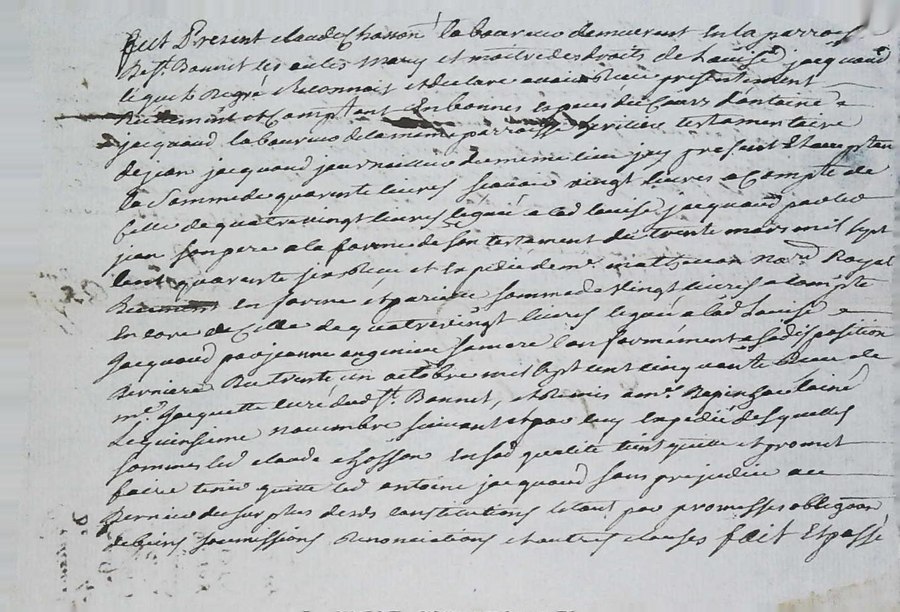 fut Present claude Chosson laboureur demeurant En la parroisse
De St. Bonnet les oules mary et maitre des droits de Louise jacquaud
lequel de gré Reconnoit et declare avoir Reçu presentement
Reellement et Comptant En bonnes Especes du Cours d'antoine
jacquaud laboureur de la meme parroisse heritier testamentaire
de jean jacquaud journaillier du meme lieu jcy present Et acceptan
la Somme de quarante livres scavoir vingt livres a Compte de
celle de quatrevingt livres leguée a lad louise jacquaud par led
jean son pere a la forme de son testament du trente mars mil sept
cent quarante six Reçu et Expedié de me. mathevon no.re Royal
En forme et pareille somme de vingt livres a Compte
Encore de Celle de quatrevingt livres leguée a lad Louise
jacquaud par jeanne sa mere Conformément a sa disposition
Derniere du trente un octobre mil sept cent cinquante Reçue de
me. jacquette curé dud St. Bonnet, et Remis a me.
Lequinsieme novembre suivant et par luy Expedié desquelles
sommes led claude chosson En sad qualité tient quitte et promet
faire tenir quitte led antoine jacquaud sans prejudice au
Dernier de surplus desd constitutions le tout par promesses obligaon
de biens soumissions Renonciations et autres clauses fait Et passé